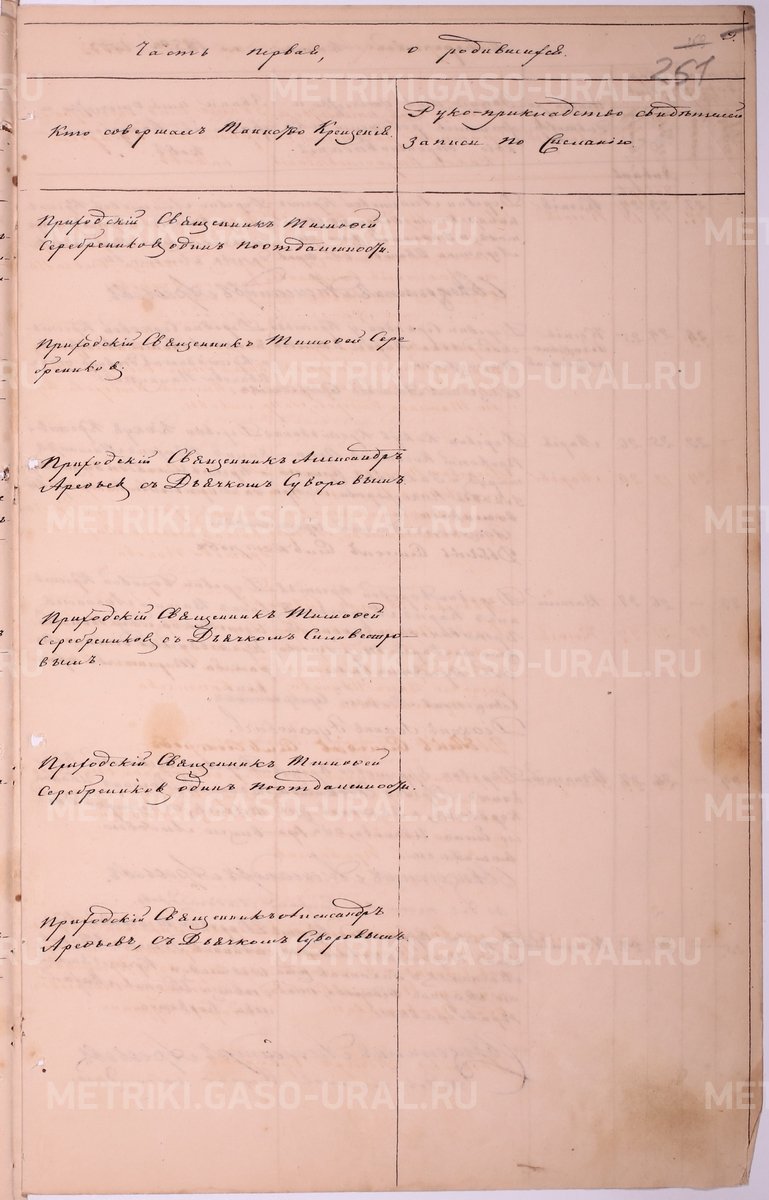 Часть первая, о родившихся.
251
Кто совершалъ Таинство Крещенія
Руко-прикладство свидѣтелей
записи по желанію.
Приходскій Священникъ Тимофей
Серебрениковъ одинъ по отдаленности.
Приходскій Священникъ Тимофей Сере-
бренниковъ.
Приходскій Священникъ Александръ
Арефьевъ съ Дьячкомъ Суворовымъ
Приходскій Священникъ Тимофей
Серебрениковъ съ Дьячкомъ Силивестро-
вымъ.
Приходскій Священникъ Тимофей
Серебрениковъ одинъ по отдаленности.
Приходскій Священникъ Александръ
Арефьевъ, съ Дьячкомъ Суворовымъ.
METRIKI.GASO-URAL.RU